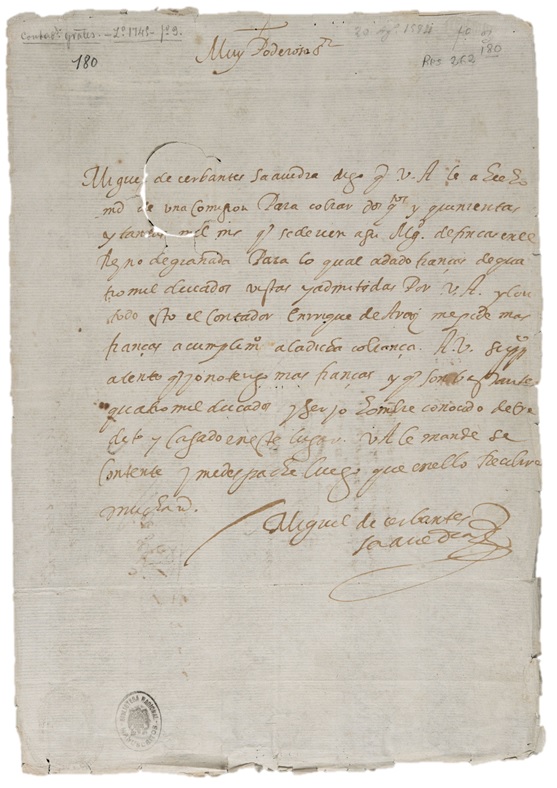 180
20 Agº 1594
180
Res 262
Muy Poderoso Sr
Miguel de cerbantes Saavedra digo q V. A. le a hecho
md de una comysion Para cobrar dos qos y quinientas
y tantas mil ms q se deven a su Mgd. de fincas en el
Reyno de granada Para lo qual a dado fianças de qua
tro mil ducados vistas y admitidas Por V. A. y con
todo esto el Contador Enrique de Araiz me pide mas
fianças a cumplimo a la dicha cobrança. A. V. A. suppco
atento q yo no tengo mas fianças y q son bastante
quatro mil ducados y ser yo hombre conocido de cre
dito y casado en este lugar. V A le mande se
contente y me despache luego que en ello Recibire
much md.
Miguel de cerbantes
Saavedra